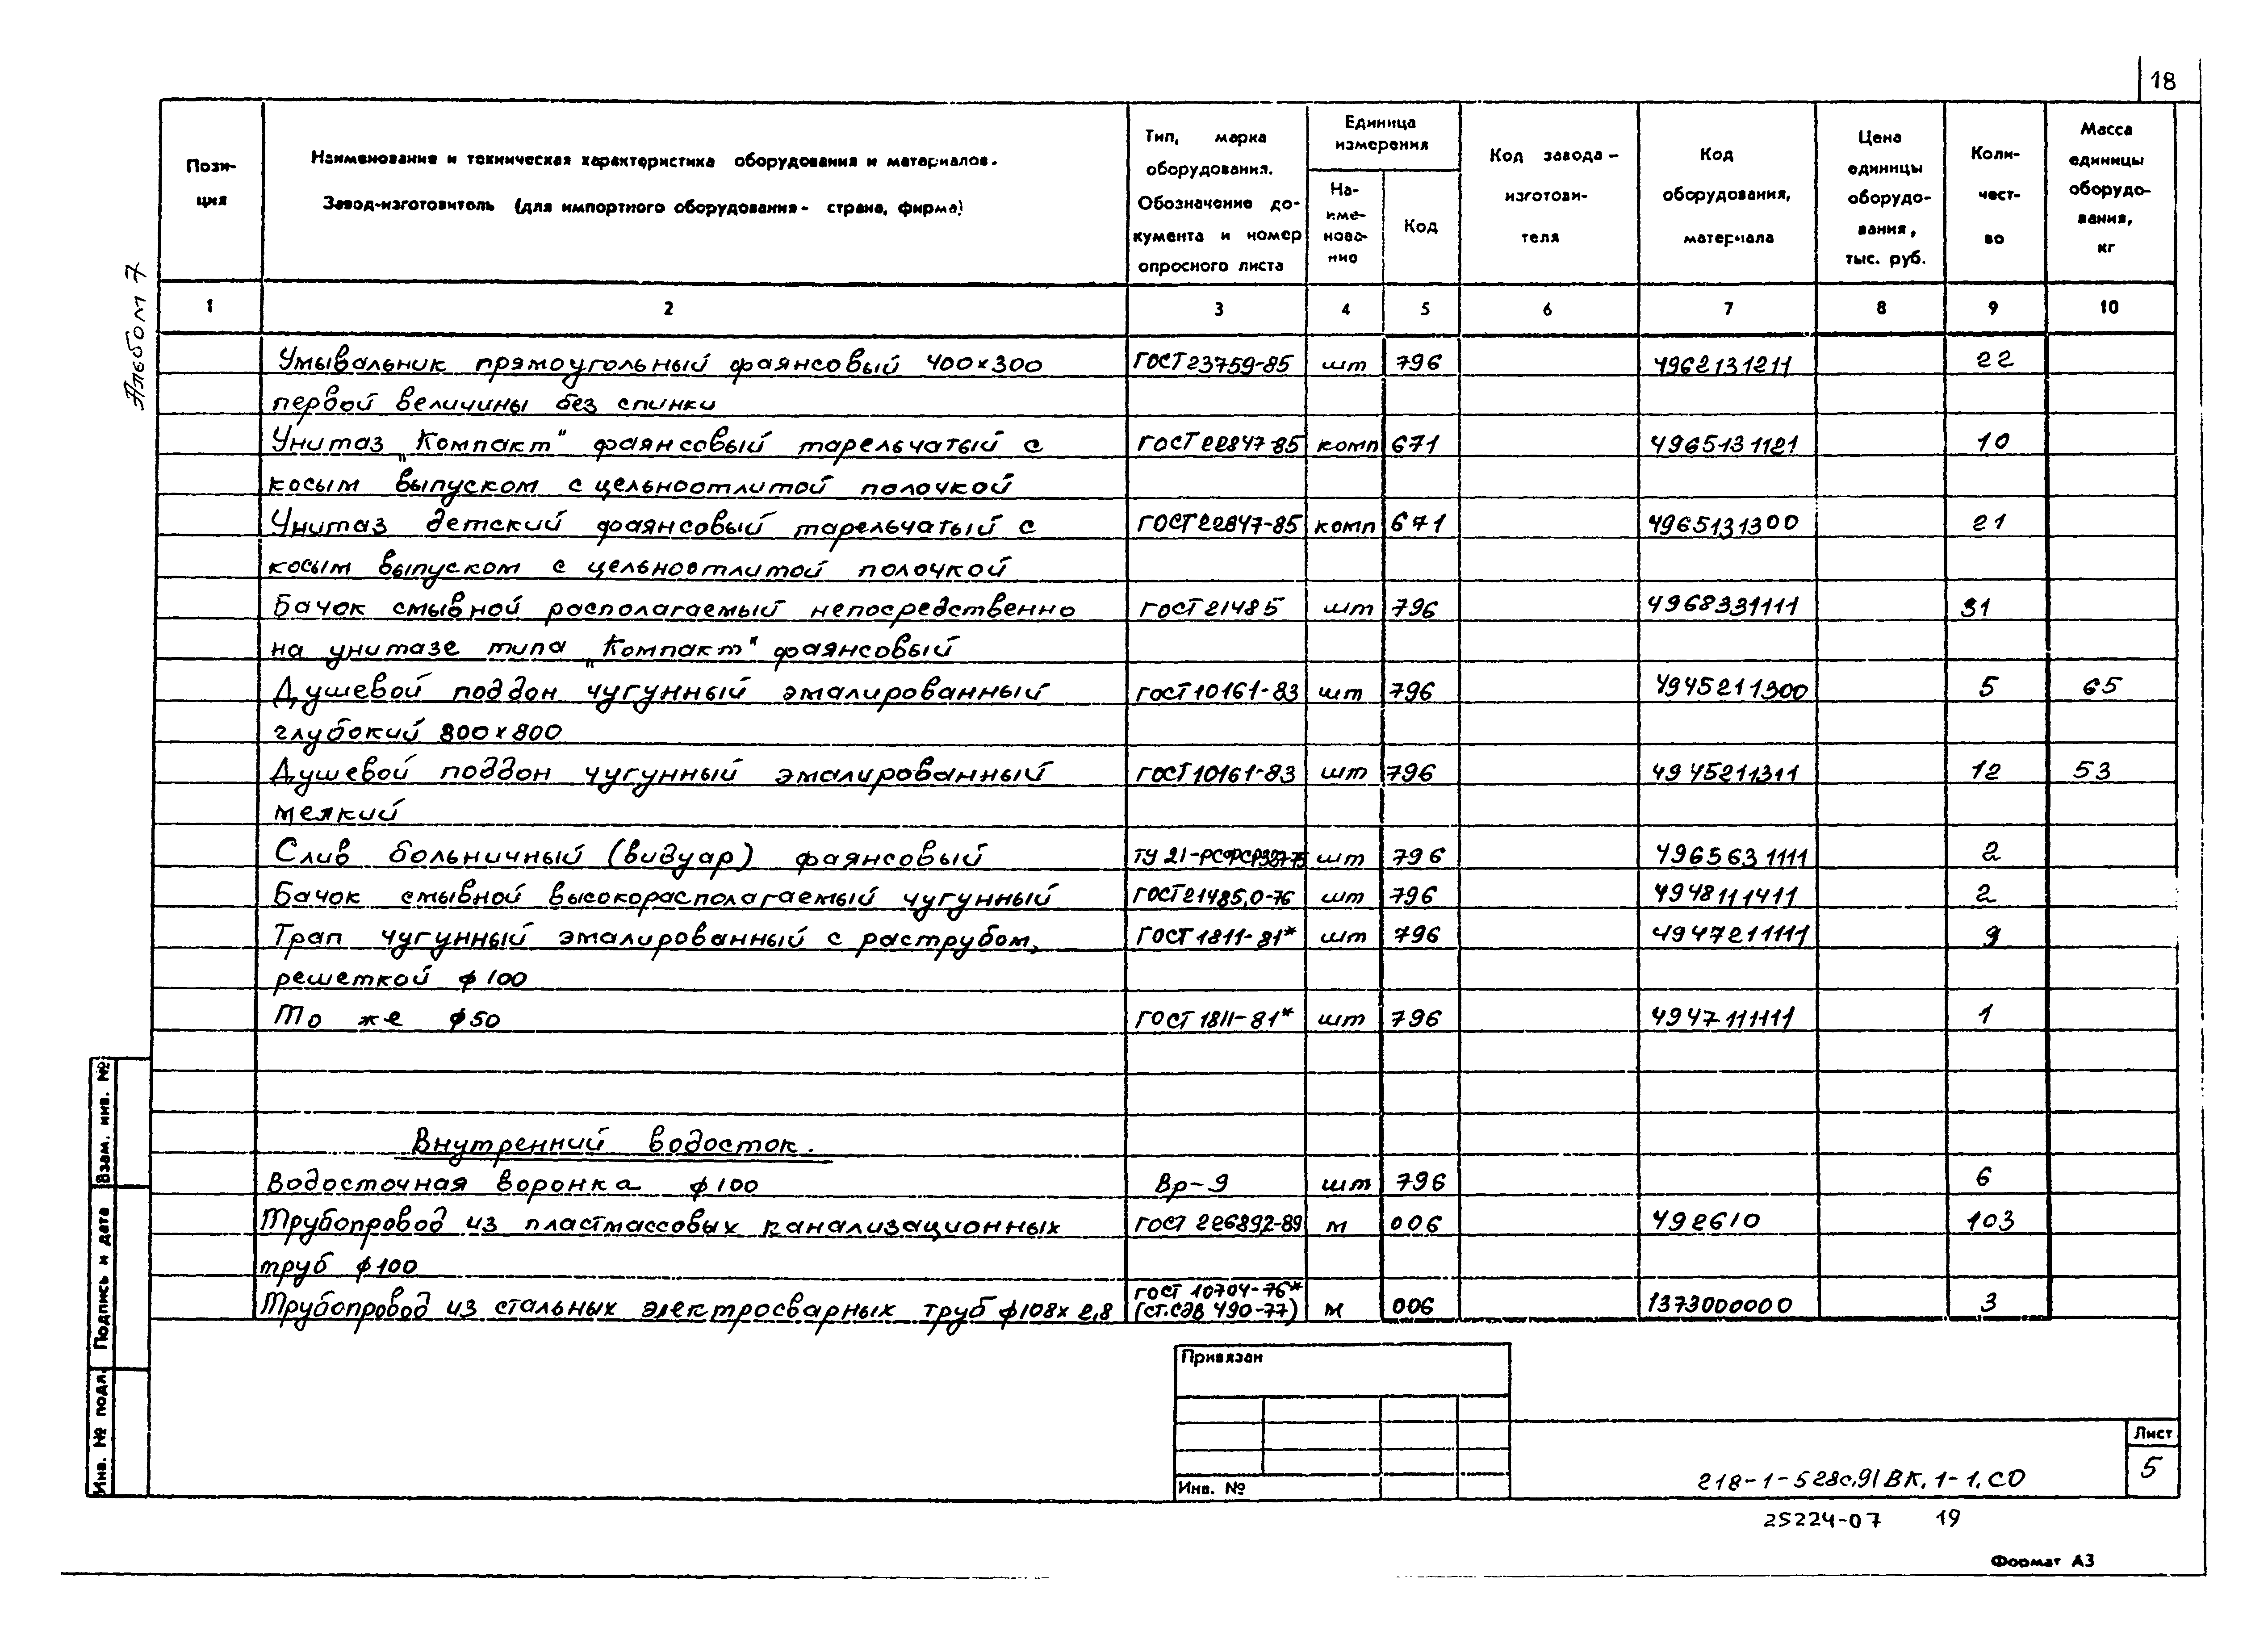 18
Пози-
ция
Наименование и техническая характеристика оборудования и материалов.
Завод-изготовитель (для импортного оборудования - страна, фирма)
Тип, марка
оборудования.
Обозначение до-
кумента и номер
опросного листа
Единица
измерения
На-
име-
нова-
ние
Код
Код завода-
изготови-
теля
Код
оборудования,
материала
Цена
единицы
оборудо-
вания,
тыс. руб.
Коли-
чест-
во
Масса
единицы
оборудо-
вания,
кг
1 2 3 4 5 6 7 8 9 10
Альбом 7
Умывальник прямоугольный фаянсовый 400х300 ГОСТ 23759-85 шт 796 4962131211 22
первой величины без спинки
Унитаз „Компакт" фаянсовый тарельчатый с ГОСТ 22847-85 комп 671 4965131121 10
косым выпуском с цельноотлитой полочкой
Унитаз детский фаянсовый тарельчатый с ГОСТ 22847-85 комп 671 4965131300 21
косым выпуском с цельноотлитой полочкой
Бачок смывной располагаемый непосредственно ГОСТ 21485 шт 796 4968331111 31
на унитазе типа „Компакт" фаянсовый
Душевой поддон чугунный эмалированный ГОСТ 10161-83 шт 796 4945211300 5 65
глубокий 800х800
Душевой поддон чугунный эмалированный ГОСТ 10161-83 шт 796 4945211311 12 53
мелкий
Слив больничный (видуар) фаянсовый ТУ 21-РСФСР 327-75 шт 796 4965631111 2
Бачок смывной высокорасполагаемый чугунный ГОСТ 21485,0-76 шт 796 4948111411 2
Трап чугунный эмалированный с раструбом, ГОСТ 1811-81* шт 796 4947211111 9
решеткой ф100
То же ф50 ГОСТ 1811-81* шт 796 4947111111 1
Внутренний водосток.
Водосточная воронка ф100 Вр-9 шт 796 6
Трубопровод из пластмассовых канализационных ГОСТ 226892-89 м 006 492610 103
труб ф100
ГОСТ 10704-76*
Трубопровод из стальных электросварных труб ф108х2,8 (ст.сэв 490-77) м 006 1373000000 3
Взам. инв. №
Подпись и дата
Инв. № подл.
Привязан
Инв. №
218-1-528с.91 ВК.1-1.СО
Лист
5
25224-07 19
Формат А3